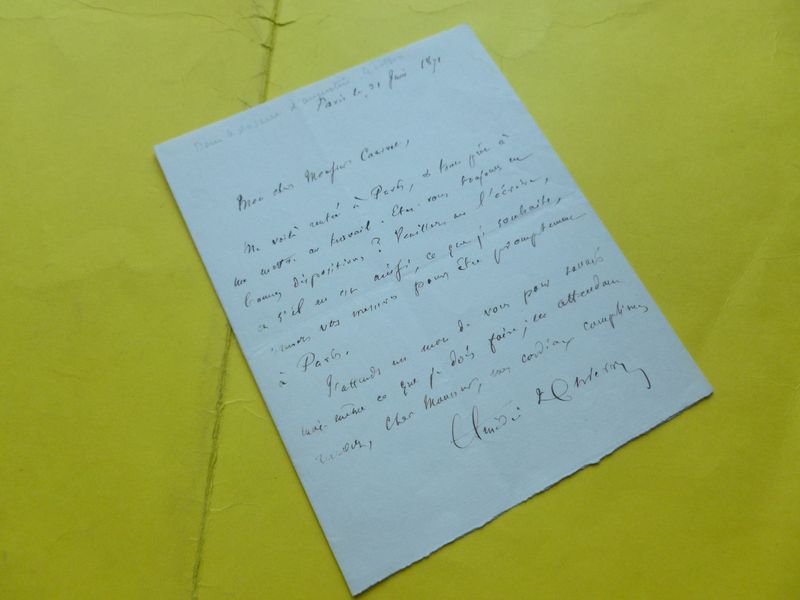 Paris le 21 Juin 1871
Mon cher Monsieur
Me voilà rentré à Paris, et tout prêt à
me mettre au travail. Etes-vous toujours en
bonnes dispositions? Veuillez me l'écrire,
et s'il en est ainsi, ce que je souhaite,
vos mesures pour être promptement
à Paris.
J'attends un mot de vous pour savoir
moi-même ce que je dois faire; en attendant
recevez, cher Monsieur, mes cordiaux compliments
Amédée